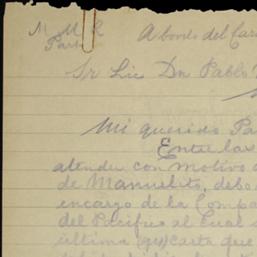 M. M. R.
Part
A bordo del Car
Sr Lic Dn Pablo
Mi querido Pa
Entre las
atender con motivo
de Manuelito, debo
encargo de la Compa
del Pacífico al cual
última (qu)carta que